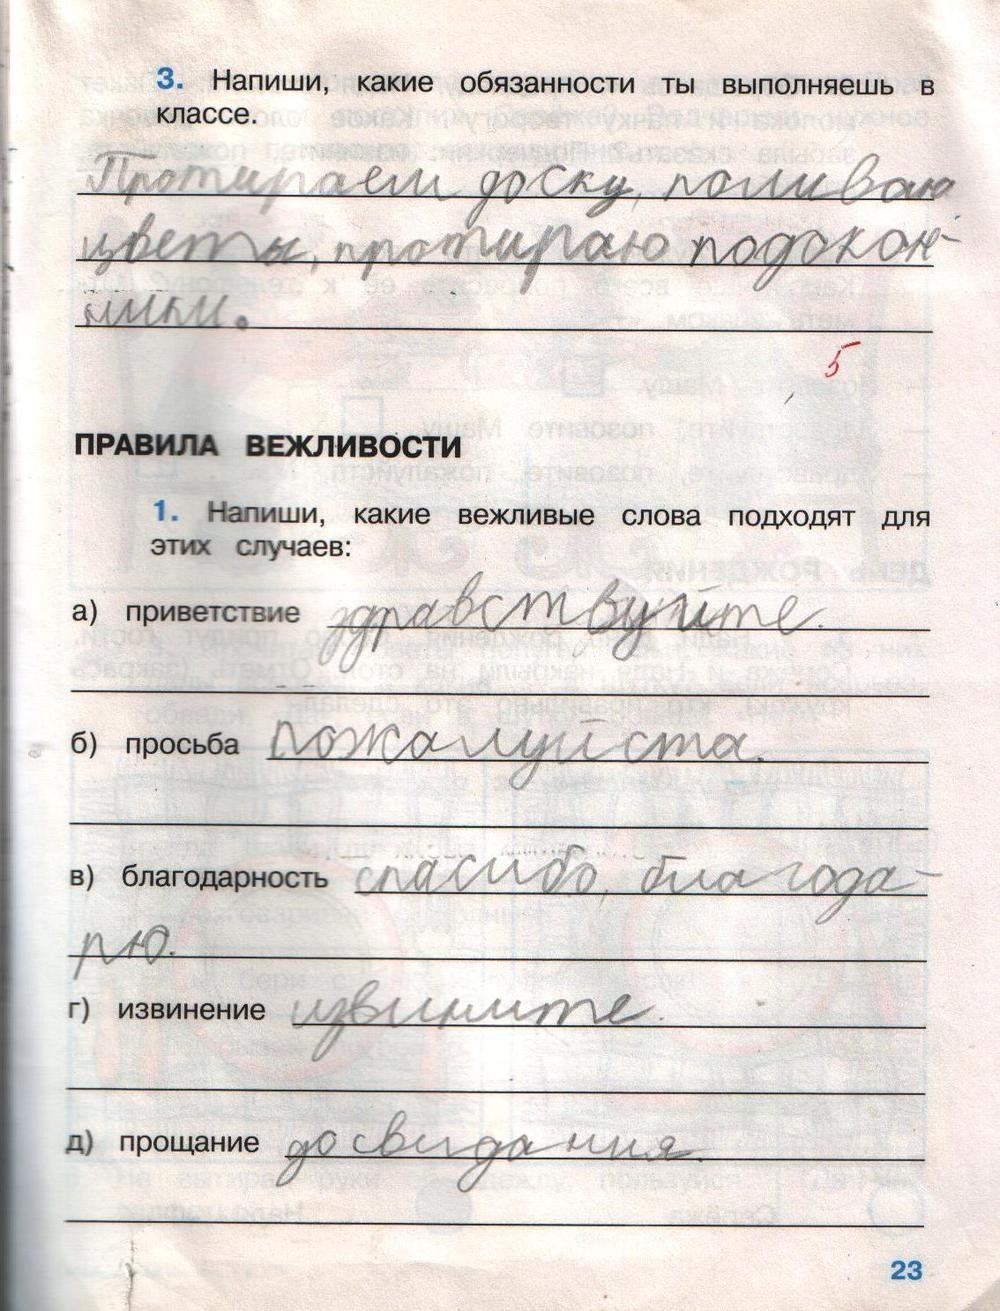 3. Напиши, какие обязанности ты выполняешь в
классе.
Протираем доску, поливаю
цветы, протираю подокон-
ники.
5
ПРАВИЛА ВЕЖЛИВОСТИ
1. Напиши, какие вежливые слова подходят для
этих случаев:
а) приветствие здравствуйте.
б) просьба пожалуйста.
в) благодарность спасибо, благода-
рю.
г) извинение извините.
д) прощание досвидания.
23